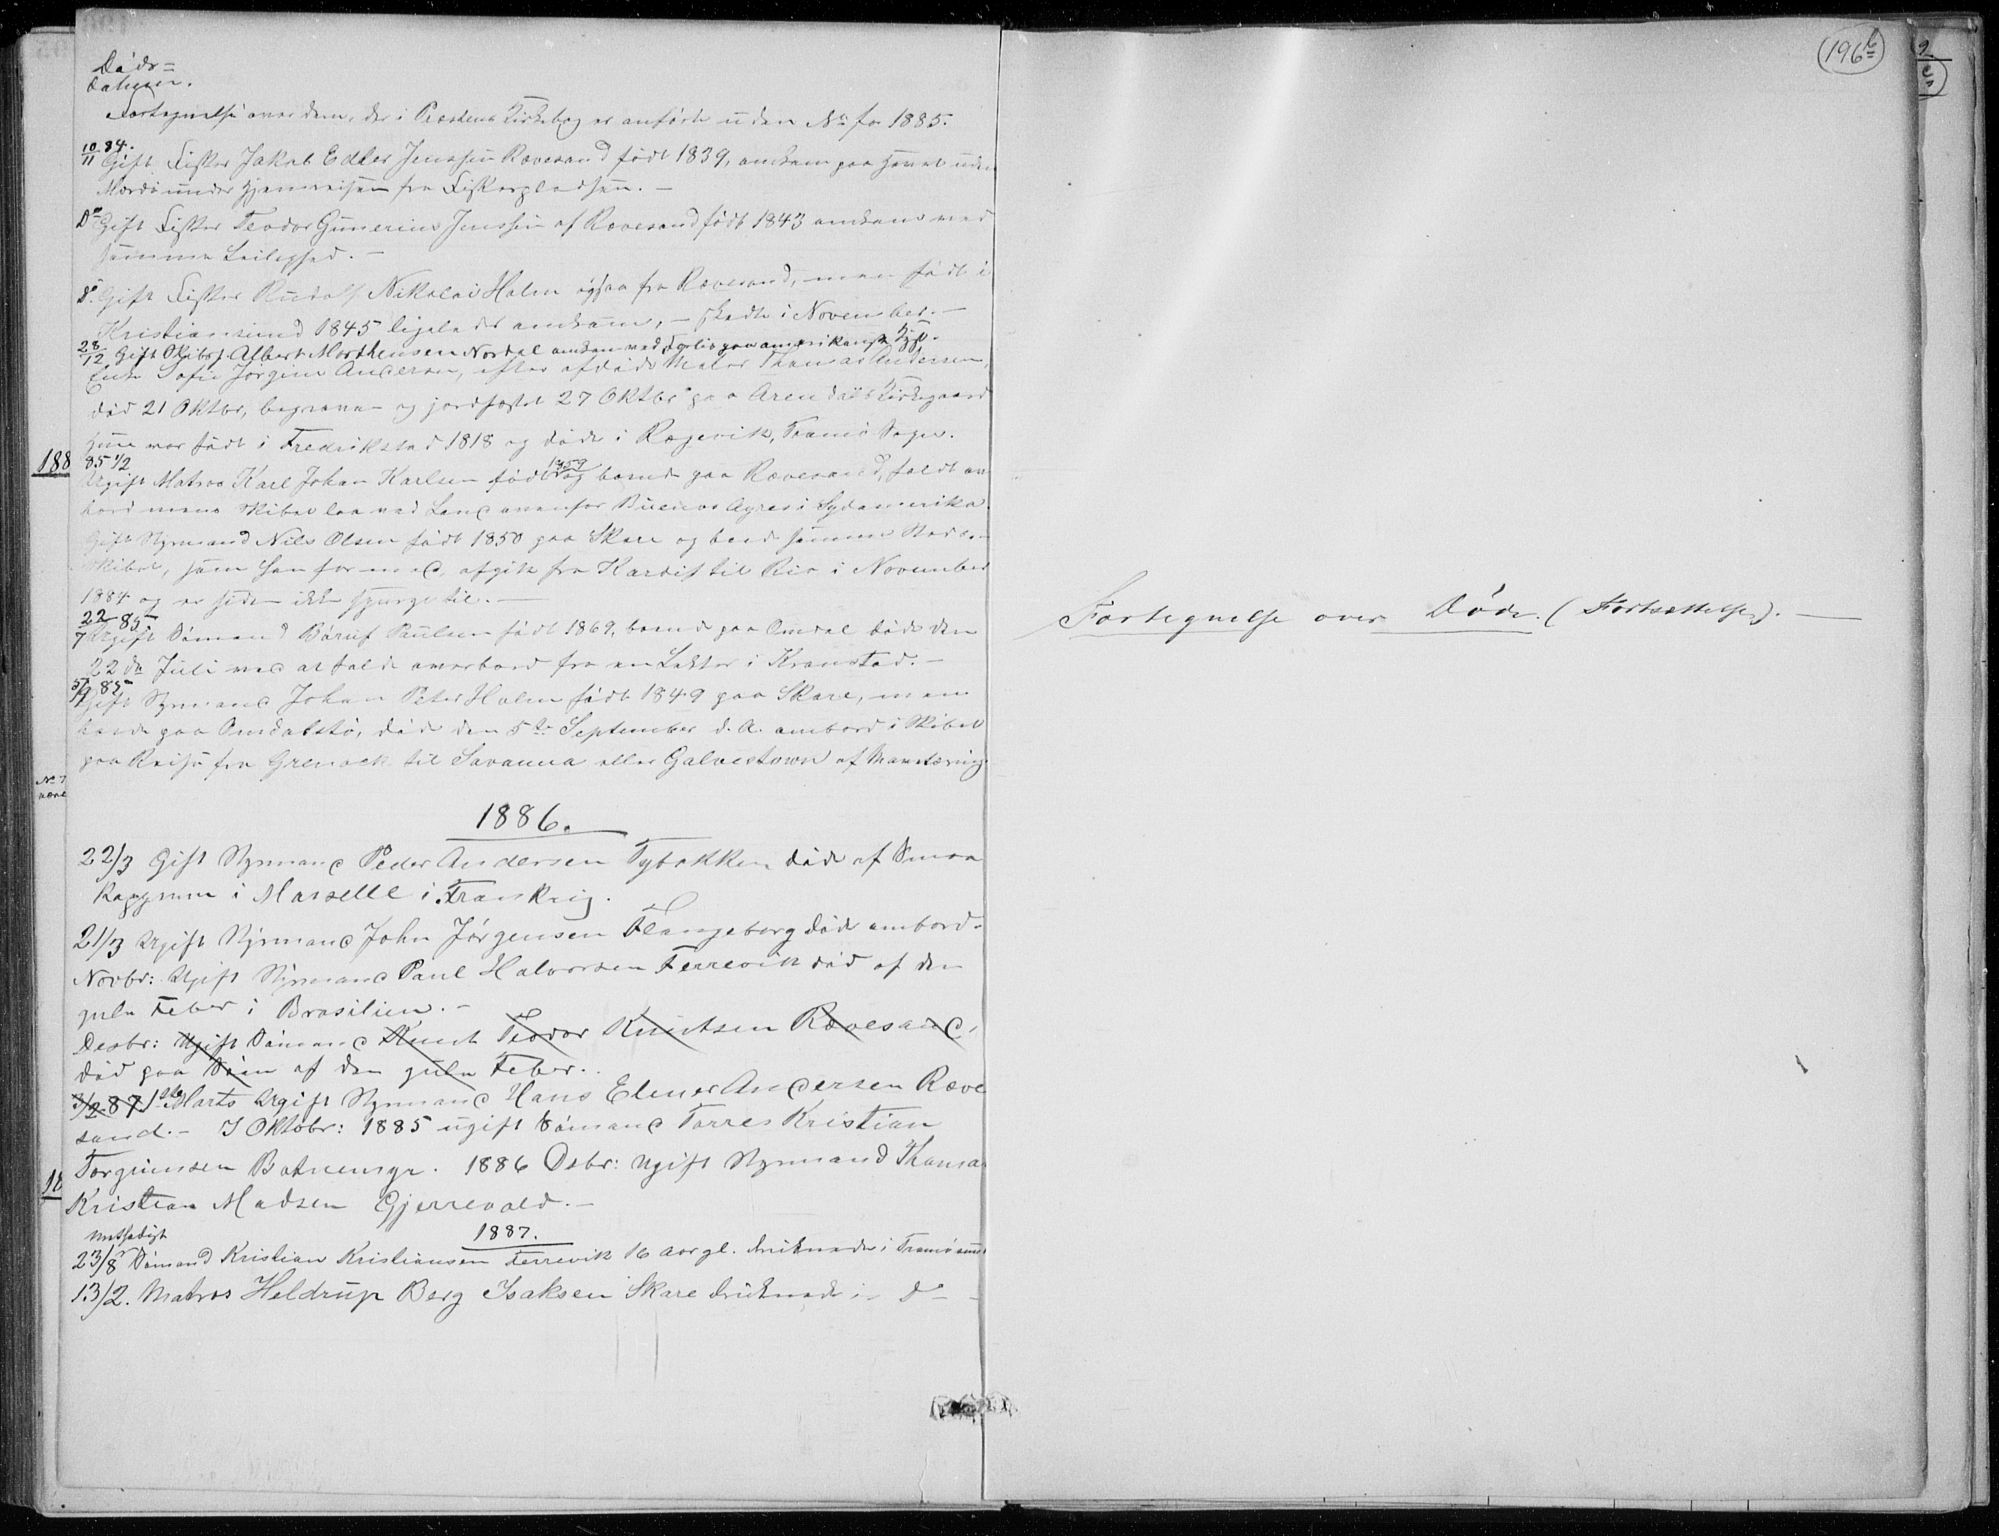 Døds=
datum.
Fortegnelse over dem, der i Præstens Kirkebog er anførte uden No for 1885.
10/11 84. Gift Fisker Jakob Edler Jenssen Rævesand født 1839, omkom paa Havet uden
Mærdø under Hjemreisen fra Fiskerpladsen. –
Do Gift Fisker Teodor Gunerius Jenssen af Rævesand født 1843 omkom ved
samme Leilighed. –
Do. Gift Fisker Rudolf Nikolai Holm ogsaa fra Rævesand, men født i
Kristiansund 1845 ligeledes omkom, – skedte i November. –
28/12 Gift Skibsf. Albert Morthensen Nordal omkom ved Forlis paa amerikansk Kyst.
Enke Sofie Jørgine Andersen, efter afdøde Maler Thomas Andersen,
død 21 Oktbr, begraven og jordfæstet 27 Oktbr paa Arendals Kirkegaard
Hun var født i Fredrikstad 1818 og døde i Rægevik, Tromø Sogn.
85 1/2
Ugift Matros Karl Johan Karlsen født 1859 og boende paa Rævesand, faldt over
bord mens Skibet laa ved Land ovenfor Buenos Ayres i Sydamerika.
Gift Styrmand Nils Olsen født 1850 paa Skare og boede samme Sted. –
Skibet, som han for med, afgik fra Kardif til Rio i November
1884 og er siden ikke spurgt til. –
22/7 85 Ugift Sømand Børuf Paulsen født 1869, boende paa Omdal døde den
22de Juli ved at falde overbord fra en Lekter i Kronstad. –
5/9 85 Gift Styrmand Johan Peter Holm født 1849 paa Skare, men
boede paa Omdalstø, død den 5te September d. A. ombord i Skibet
paa Reise fra Grenock til Savanna eller Galvestown af Mavetæring.
1886.
22/3 Gift Styrmand Peder Andersen Tybakken døde af Smaa
kopperne i Marselle i Frankrig.
21/3 Ugift Styrmand John Jørgensen Flangeborg døde ombord.
Novbr: Ugift Styrmand Paul Halvorsen Ferrevik død af den
gule Feber i Brasilien. –
Desbr: Ugift Sømand Knut Teodor Knutsen Rævesand,
død paa Søen af den gule Feber.
3/2 87 1ste Marts Ugift Styrmand Hans Elmer Andersen Ræve
sand. – I Oktobr: 1885 ugift Sømand Torres Kristian
Torgrimsen Botnemyr. 1886 Desbr: Ugift Styrmand Thomas
Kristian Madsen Gjerrevold. –
1887.
23/8 Sømand Kristian Kristiansen Ferrevik 16 Aar gl. druknede i Tromøsund
13/2. Matros Heldrup Berg Isaksen Skare druknede i Do –
188
No 7
18
196b
Fortegnelse over Døde. (Fortsættelse). –